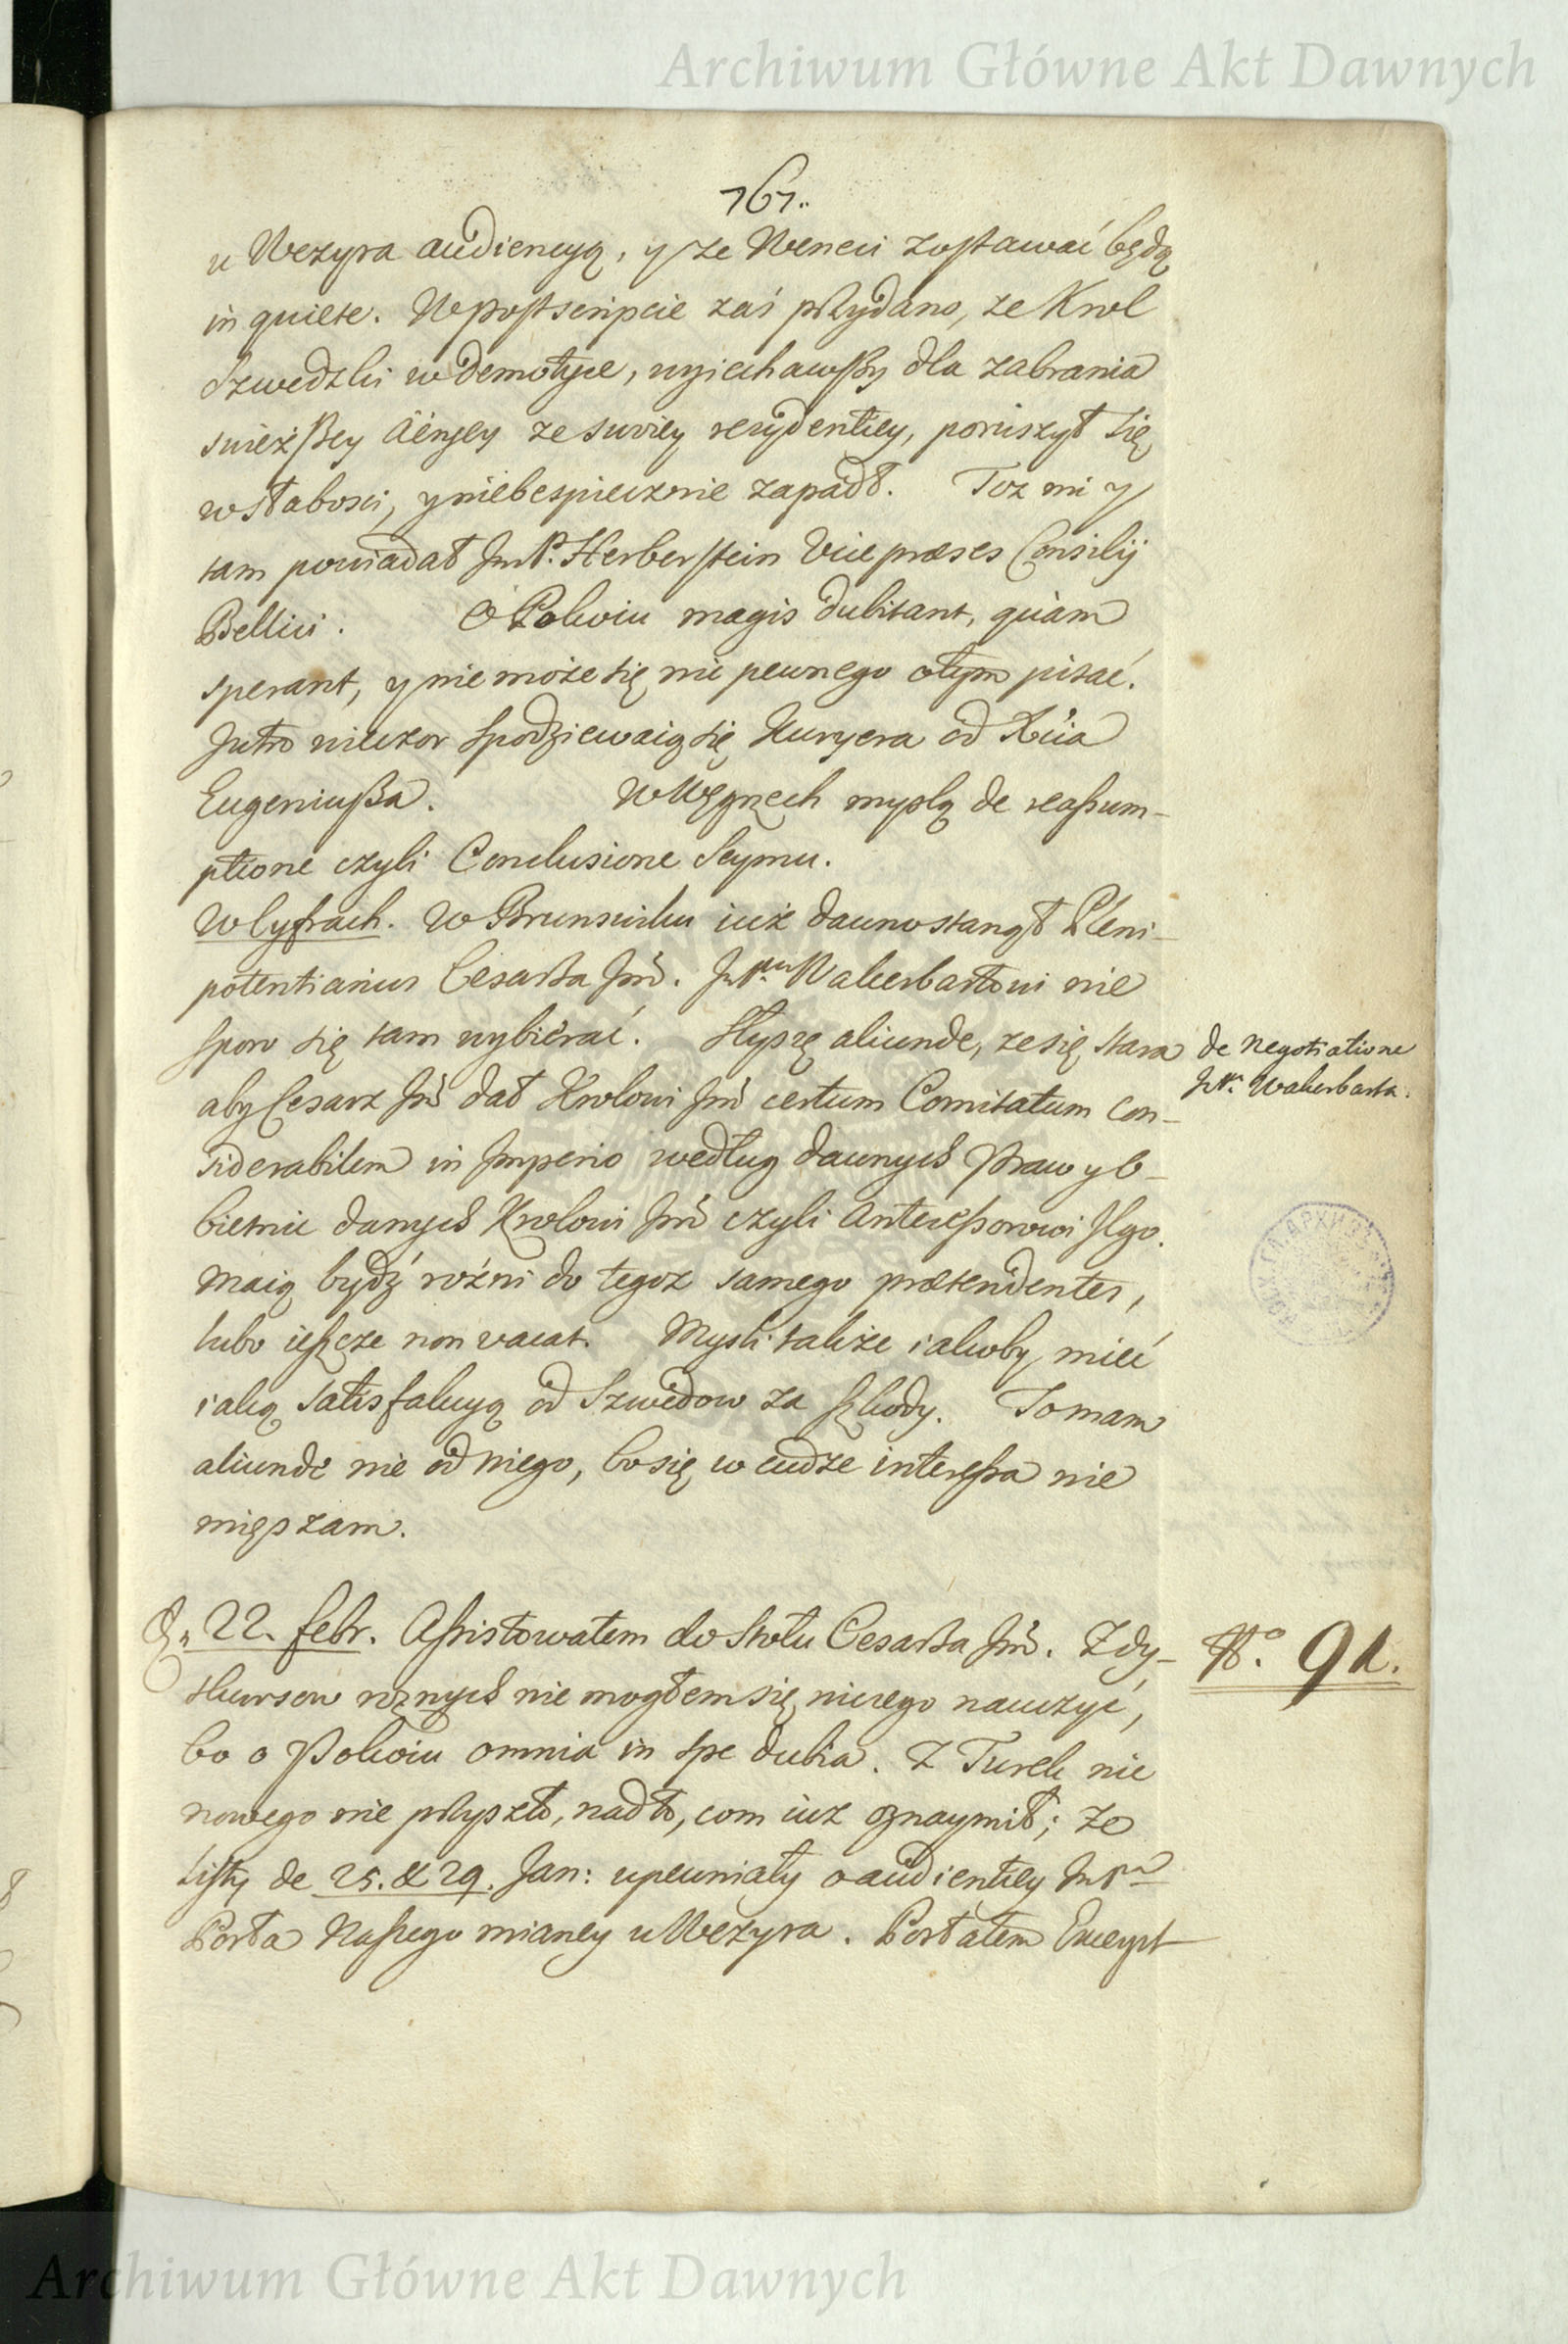 Archiwum Główne Akt Dawnych
761.
u Wezyra audiencyą, y ze Weneci zostawać będą
in quiete. W postscripcie zaś przydano, ze Krol
Szwedzki w Demotyce, wyiechawszy dla zabrania
swieższey Aëryey ze swoiey rezydentiey, poruszył się
w słabosci, y niebespiecznie zapadł. Toz mi y
tam powiadał JmP. Herberstein Vice præses Consilij
Bellici. O Pokoiu magis dubitant, quàm
sperant, y nie może się nic pewnego o tym pisać.
Jutro wieczor spodziewaią się Kuryera od Xcia
Eugeniusza. W Węgrzech myslą de reassum-
ptione czyli Conclusione Seymu.
W Cyfrach. W Brunswiku iuż dawno stanął Pleni-
potentiarius Cesarza Jmć. JmPanu Wakerbartowi nie
sporo się tam wybierać. Słyszę aliunde, ze się stara
aby Cesarz Jmć dał Krolowi Jmć certum Comitatum con-
siderabilem in Imperio według dawnych Praw y o-
bietnic danych Krolowi Jmć czyli Antecessorowi Jego.
Maią bydź rożni do tegoz samego prætendentes,
lubo ieszcze non vacat. Mysli także iakoby mieć
iaką satisfakcyą od Szwedow za szkody. To mam
aliunde nie od niego, bo się w cudze interessa nie
mięszam.
de Negotiatione
JPa. Wakerbarta.
22. febr. Assistowałem do Stołu Cesarza Jmć. Z dy-
skursow roznych nie mogłem się niczego nauczyć,
bo o Pokoiu omnia in spe dubia. Z Turek nic
nowego nie przyszło, nad to, com iuz oznaymił; ze
Listy de 25. & 29. Jan: upewniały o audientiey JmPa
Posła Naszego mianey u Wezyra. Posłałem Excerpt
No. 91.
Archiwum Główne Akt Dawnych